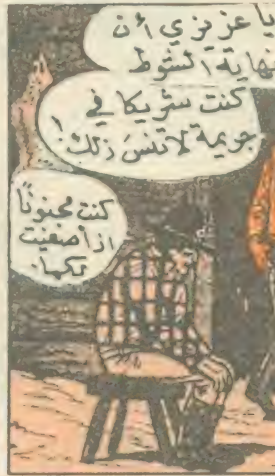 يا عزيزي أن
نهاية الشوط
كنت شريكا في
جريمة لا تنسَ ذلك!
كنت مجنونًا
اذ أصغيت
لكما.